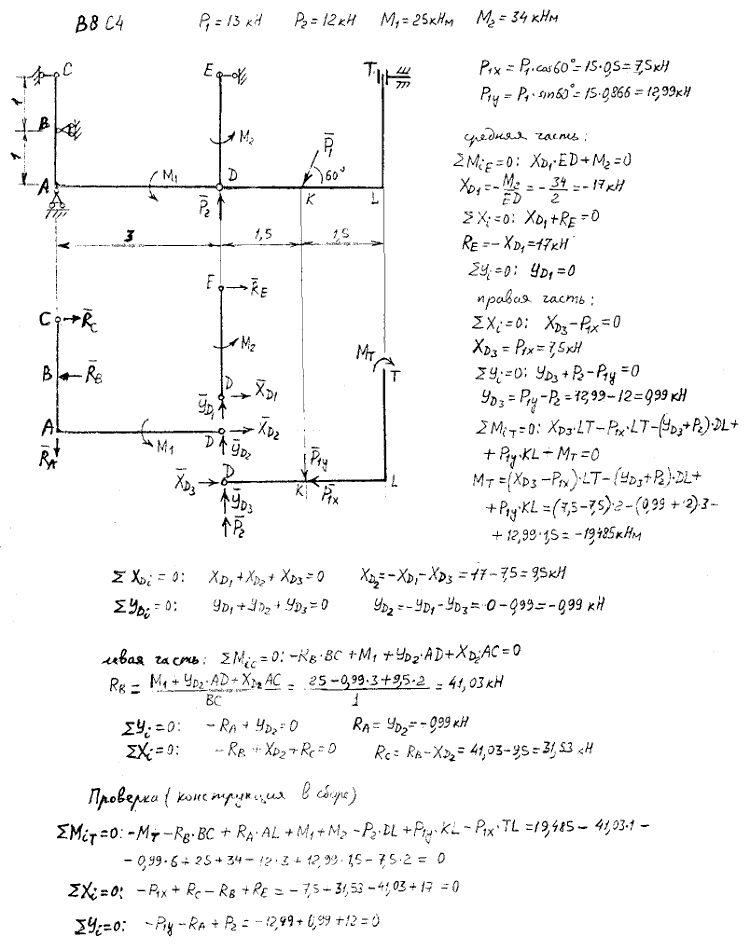 В8 С4 P₁ = 13 кН P₂ = 12 кН M₁ = 25 кНм M₂ = 34 кНм
C E T
P₁ₓ = P₁·cos60° = 15·0,5 = 7,5 кН
P₁y = P₁·sin60° = 15·0,866 = 12,99 кН
1
B M₂ P̄₁
1
A M₁ D 60° K L
P̄₂
3 1,5 1,5
средняя часть:
ΣMiE = 0: XD₁·ED + M₂ = 0
XD₁ = -M₂/ED = -34/2 = -17 кН
ΣXi = 0: XD₁ + RE = 0
RE = -XD₁ = 17 кН
ΣYi = 0: YD₁ = 0
правая часть:
ΣXi = 0: XD₃ - P₁ₓ = 0
XD₃ = P₁ₓ = 7,5 кН
ΣYi = 0: YD₃ + P₂ - P₁y = 0
YD₃ = P₁y - P₂ = 12,99 - 12 = 0,99 кН
ΣMiT = 0: XD₃·LT - P₁ₓ·LT - (YD₃ + P₂)·DL +
+ P₁y·KL - MT = 0
MT = (XD₃ - P₁ₓ)·LT - (YD₃ + P₂)·DL +
+ P₁y·KL = (7,5 - 7,5)·2 - (0,99 + 12)·3 -
+ 12,99·1,5 = -19,485 кНм
E R̄E
C R̄C
M₂ MT T
B R̄B
D X̄D₁
ȲD₁
A M₁ D X̄D₂
R̄A ȲD₂ P̄₁y
X̄D₃ D K P̄₁ₓ L
ȲD₃
P̄₂
ΣXDi = 0: XD₁ + XD₂ + XD₃ = 0 XD₂ = -XD₁ - XD₃ = 17 - 7,5 = 9,5 кН
ΣYDi = 0: YD₁ + YD₂ + YD₃ = 0 YD₂ = -YD₁ - YD₃ = -0 - 0,99 = -0,99 кН
левая часть: ΣMiC = 0: -RB·BC + M₁ + YD₂·AD + XD₂·AC = 0
RB = (M₁ + YD₂·AD + XD₂·AC)/BC = (25 - 0,99·3 + 9,5·2)/1 = 41,03 кН
ΣYi = 0: -RA + YD₂ = 0 RA = YD₂ = -0,99 кН
ΣXi = 0: -RB + XD₂ + RC = 0 RC = RB - XD₂ = 41,03 - 9,5 = 31,53 кН
Проверка (конструкция в сборе)
ΣMiT = 0: -MT - RB·BC + RA·AL + M₁ + M₂ - P₂·DL + P₁y·KL - P₁ₓ·TL = 19,485 - 41,03·1 -
- 0,99·6 + 25 + 34 - 12·3 + 12,99·1,5 - 7,5·2 = 0
ΣXi = 0: -P₁ₓ + RC - RB + RE = -7,5 + 31,53 - 41,03 + 17 = 0
ΣYi = 0: -P₁y - RA + P₂ = -12,99 + 0,99 + 12 = 0